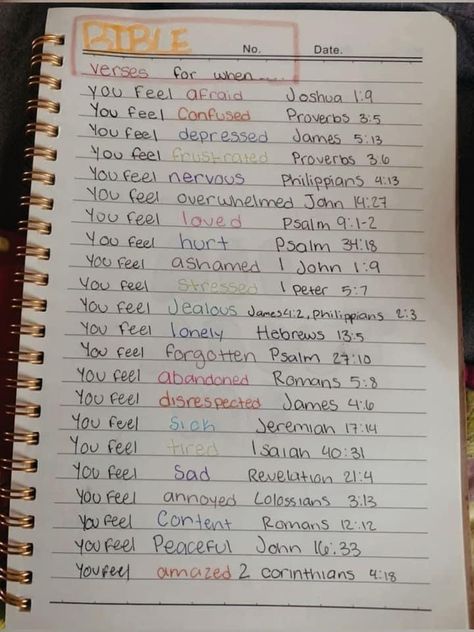 BIBLE No. Date.
verses for when.....
You Feel afraid Joshua 1:9
You Feel confused Proverbs 3:5
You Feel depressed James 5:13
You Feel frustrated Proverbs 3:6
You Feel nervous Philippians 4:13
You Feel overwhelmed John 14:27
You Feel loved Psalm 9:1-2
You Feel hurt Psalm 34:18
You Feel ashamed 1 John 1:9
You Feel stressed 1 Peter 5:7
You Feel Jealous James 4:2, Philippians 2:3
You Feel lonely Hebrews 13:5
You Feel forgotten Psalm 27:10
You Feel abandoned Romans 5:8
You Feel disrespected James 4:6
You Feel Sick Jeremiah 17:14
You Feel tired Isaiah 40:31
You Feel Sad Revelation 21:4
You Feel annoyed Colossians 3:13
You Feel Content Romans 12:12
You Feel Peaceful John 16:33
You Feel amazed 2 corinthians 4:18